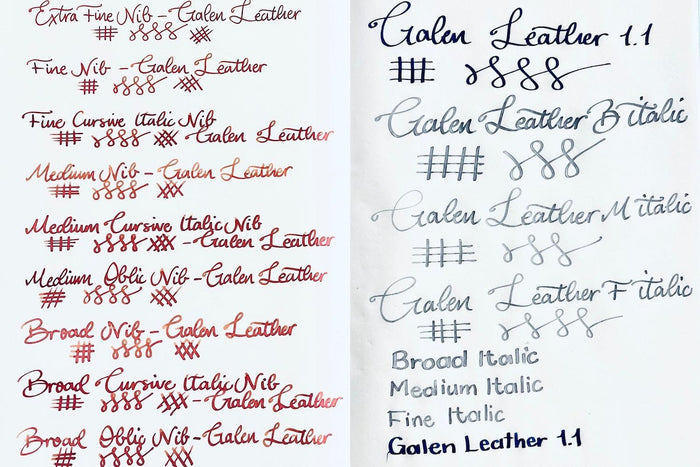 Extra Fine Nib - Galen Leather
Fine Nib - Galen Leather
Fine Cursive Italic Nib
Galen Leather
Medium Nib - Galen Leather
Medium Cursive Italic Nib
- Galen Leather
Medium Oblic Nib - Galen Leather
Broad Nib - Galen Leather
Broad Cursive Italic Nib
- Galen Leather
Broad Oblic Nib - Galen Leather
Galen Leather 1.1
Galen Leather B italic
Galen Leather M italic
Galen Leather F italic
Broad Italic
Medium Italic
Fine Italic
Galen Leather 1.1